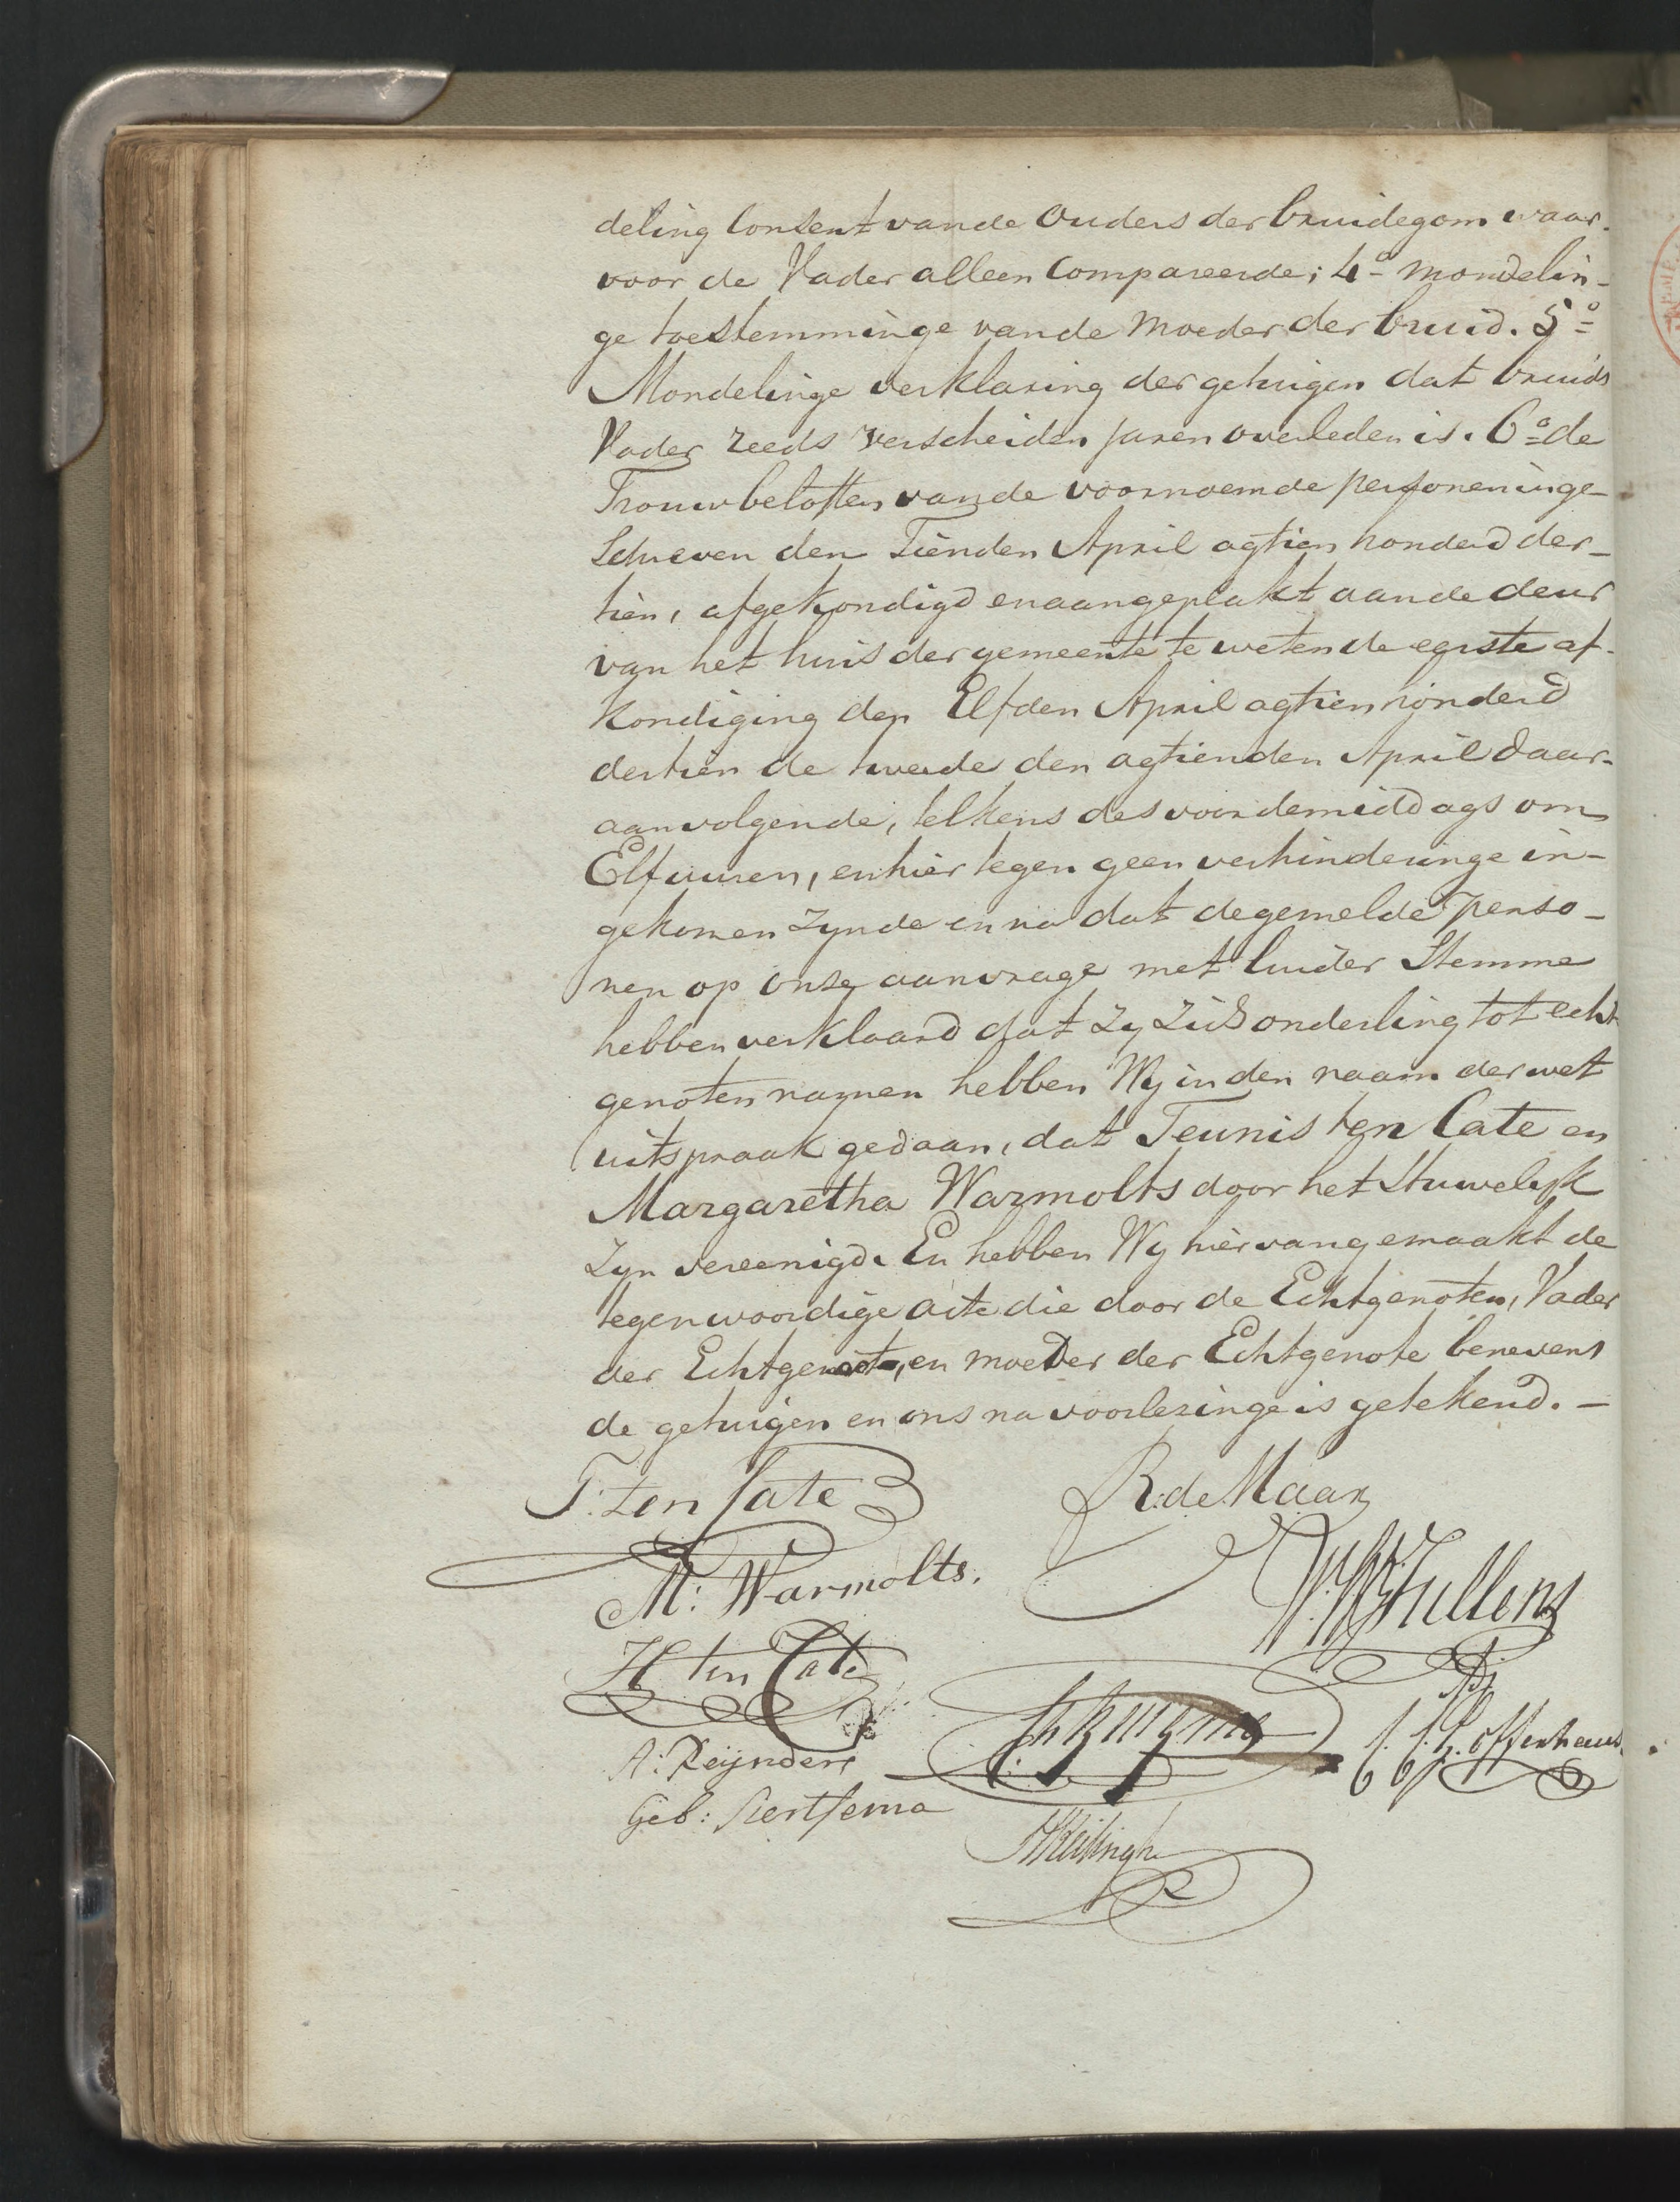 deling Consent vande Ouders der bruidegom waar-
voor de Vader alleen Compareerde; 4o- mondelin-
ge toestemminge vande Moeder der bruid. 5o=
Mondelinge verklaring der getuigen dat bruids
Vader reeds verscheiden jaren overleden is. 6o= de
Trouwbeloften vande voornoemde personen inge-
schreven den Tienden April agtien honderd der-
tien, afgekondigd en aangeplakt aan de deur
van het huis der gemeente te weten de eerste af-
kondiging den Elfden April agtien honderd
dertien de tweede den agtienden April daar-
aanvolgende, telkens des voordemiddags om
Elf uuren, en hier tegen geen verhinderinge in-
gekomen zynde en na dat de gemelde perso-
nen op onze aanvrage met luider Stemme
hebben verklaard dat zy zich onderling tot echt
genoten namen hebben Wy in den naam der wet
uitspraak gedaan, dat Teunis ten Cate en
Margaretha Warmolts door het Huwelyk
zyn vereenigd. En hebben Wy hier van gemaakt de
tegenwoordige acte die door de Echtgenoten, Vader
der Echtgenoot, en moeder der Echtgenote benevens
de getuigen en ons na voorlezinge is getekend. -
T: ten Cate R: de Maar
M: Warmolts.
H ten Cate
A: Reijnders
Geb: Kertsema